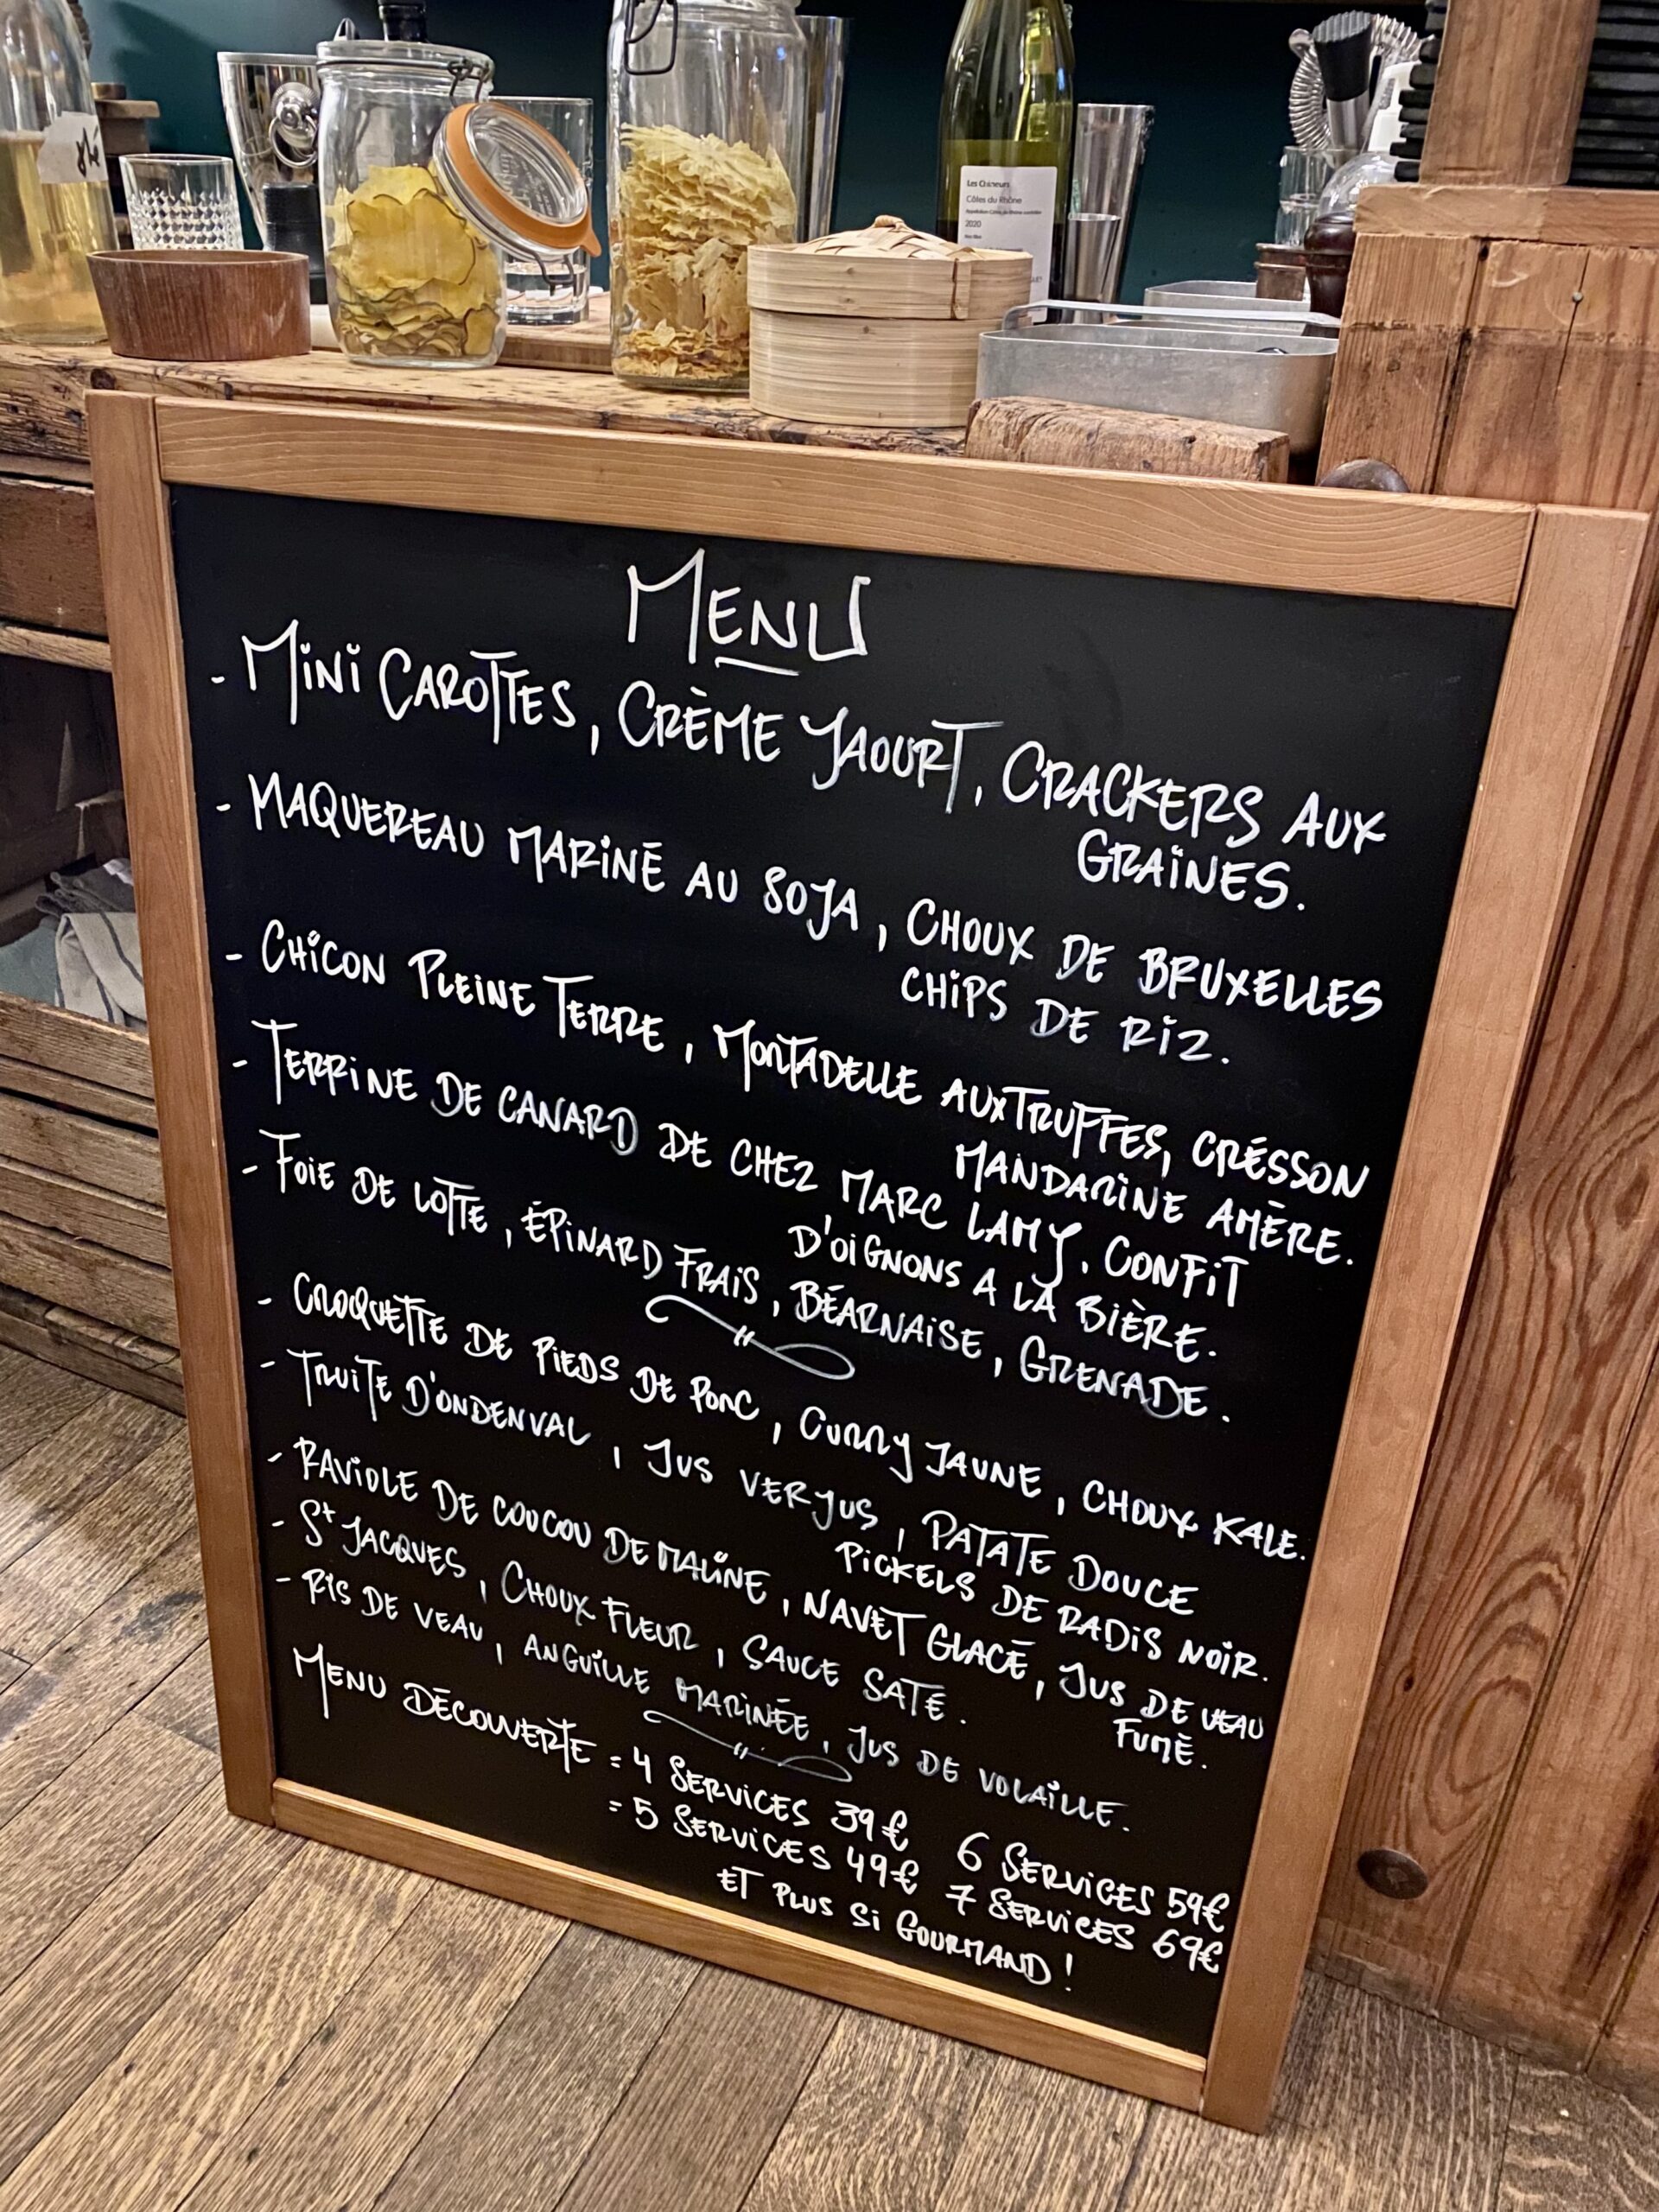 Les Coineurs
Côtes du Rhône
2020
MENU
- MINI CAROTTES, CRÈME YAOURT, CRACKERS AUX
GRAINES.
- MAQUEREAU MARINÉ AU SOJA, CHOUX DE BRUXELLES
CHIPS DE RIZ.
- CHICON PLEINE TERRE, MORTADELLE AUX TRUFFES, CRÉSSON
MANDARINE AMÈRE.
- TERRINE DE CANARD DE CHEZ MARC LAMY, CONFIT
D'OIGNONS A LA BIÈRE.
- FOIE DE LOTTE, ÉPINARD FRAIS, BÉARNAISE, GRENADE.
- CROQUETTE DE PIEDS DE PORC, CURRY JAUNE, CHOUX KALE.
- TRUITE D'ONDENVAL, JUS VERJUS, PATATE DOUCE
PICKELS DE RADIS NOIR.
- RAVIOLE DE COUCOU DE MALINE, NAVET GLACÉ, JUS DE VEAU
FUMÉ.
- ST JACQUES, CHOUX FLEUR, SAUCE SATÉ.
- RIS DE VEAU, ANGUILLE MARINÉE, JUS DE VOLAILLE.
MENU DÉCOUVERTE = 4 SERVICES 39€ 6 SERVICES 59€
= 5 SERVICES 49€ 7 SERVICES 69€
ET PLUS SI GOURMAND !